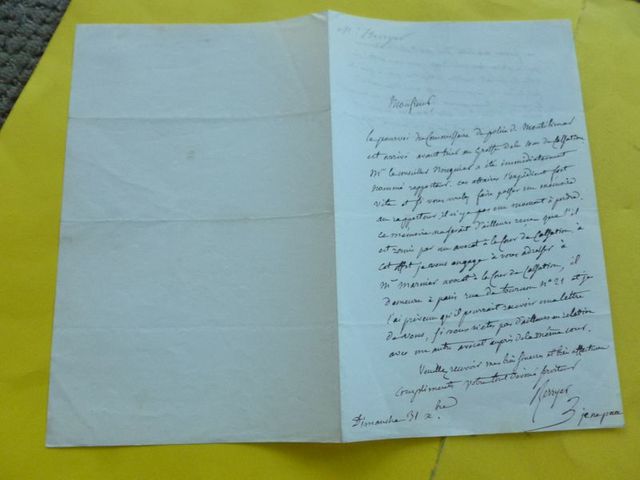 Mr Berryer
Monsieur
Le pourvoi du Commissaire de police de Montélimar
est arrivé avant hier au greffe de la cour de Cassation
Mr le conseiller Nouguier a été immédiatement
nommé rapporteur. ces affaires s'expédient fort
vite et si vous voulez faire passer un mémoire
au rapporteur il n'y a pas un moment à perdre.
ce mémoire ne serait d'ailleurs reçu que s'il
est remis par un avocat à la Cour de Cassation, à
cet effet je vous engage à vous adresser à
Mr marmier avocat à la Cour de Cassation, il
demeure à paris rue de tournon n° 21 et je
l'ai prévenu qu'il pourrait recevoir une lettre
de vous, si vous n'etes pas d'ailleurs en relation
avec un autre avocat auprès de la même cour.
Veuillez recevoir mes biens et bien affectueux
compliments votre tout dévoué serviteur
Berryer
Dimanche 31 xbre